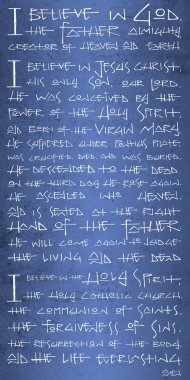 I BELIEVE IN GOD,
THE FATHER ALMIGHTY
CREATOR OF HEAVEN AND EARTH
I BELIEVE IN JESUS CHRIST
HIS ONLY SON, OUR LORD.
HE WAS CONCEIVED BY THE
POWER OF THE HOLY SPIRIT,
AND BORN OF THE VIRGIN MARY,
HE SUFFERED UNDER PONTIUS PILATE,
WAS CRUCIFIED, DIED AND WAS BURIED.
HE DESCENDED TO THE DEAD.
ON THE THIRD DAY HE ROSE AGAIN.
HE ASCENDED INTO HEAVEN,
AND IS SEATED AT THE RIGHT
HAND OF THE FATHER
HE WILL COME AGAIN TO JUDGE
THE LIVING AND THE DEAD.
I BELIEVE IN THE HOLY SPIRIT
THE HOLY CATHOLIC CHURCH,
THE COMMUNION OF SAINTS,
THE FORGIVENESS OF SINS,
THE RESURRECTION OF THE BODY,
AND THE LIFE EVERLASTING